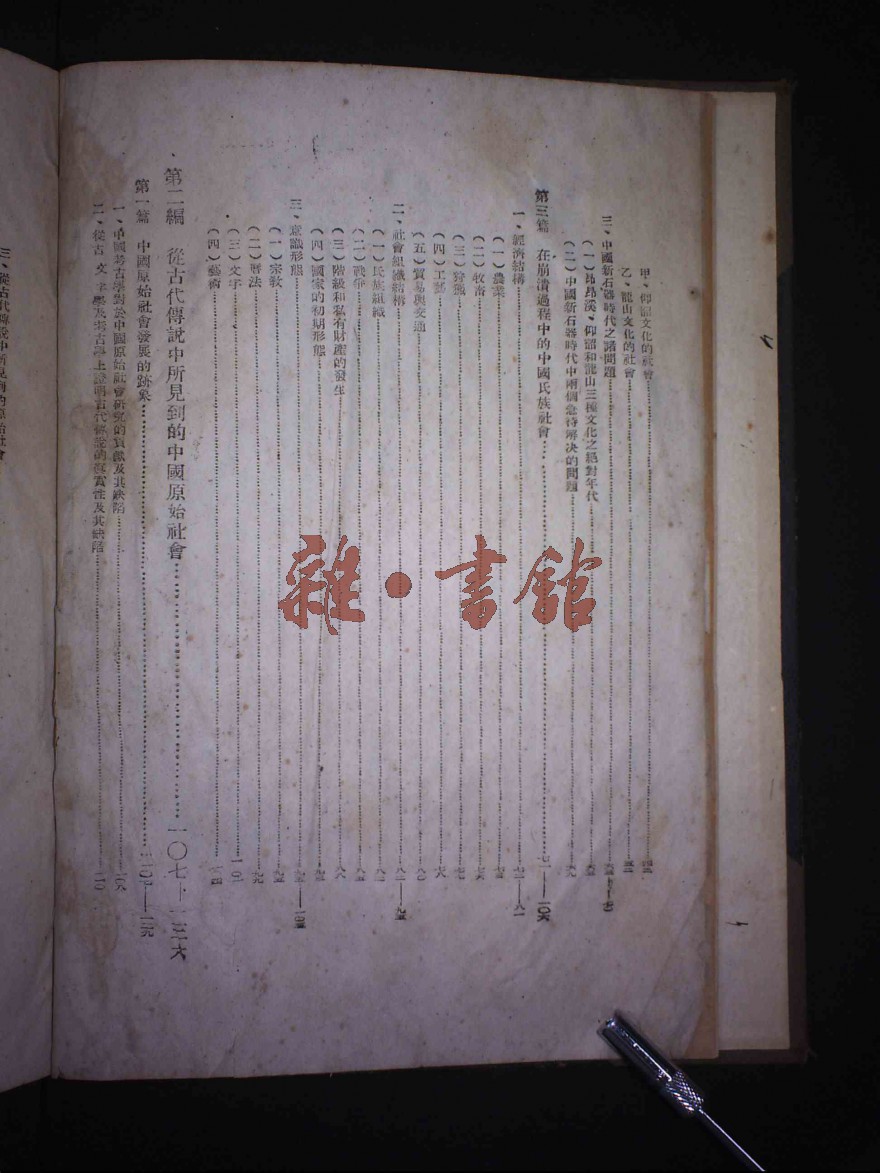 甲、仰韶文化的社會
乙、龍山文化的社會
三、中國新石器時代之諸問題
（一）昂昂溪、仰韶和龍山三種文化之絕對年代
（二）中國新石器時代中兩個急待解决的問題
第三篇 在崩潰過程中的中國氏族社會 一〇六
一、經濟結構 八一
（一）農業
（二）牧畜
（三）狩獵
（四）工藝
（五）貿易與交通
二、社會組織結構
（一）氏族組織 八二
（二）戰爭 八五
（三）階級和私有財產的發生 八八
（四）國家的初期形態
三、意識形態
（一）宗教
（二）曆法
（三）文字
（四）藝術
第二編 從古代傳說中所見到的中國原始社會 一〇七——二三六
第一篇 中國原始社會發展的跡象
一、中國考古學對於中國原始社會研究的貢獻及其缺陷
二、從古文字學及考古學上證明古代傳說的真實性及其缺陷
三、從古代傳說中所見到的原始社會
雜·書館